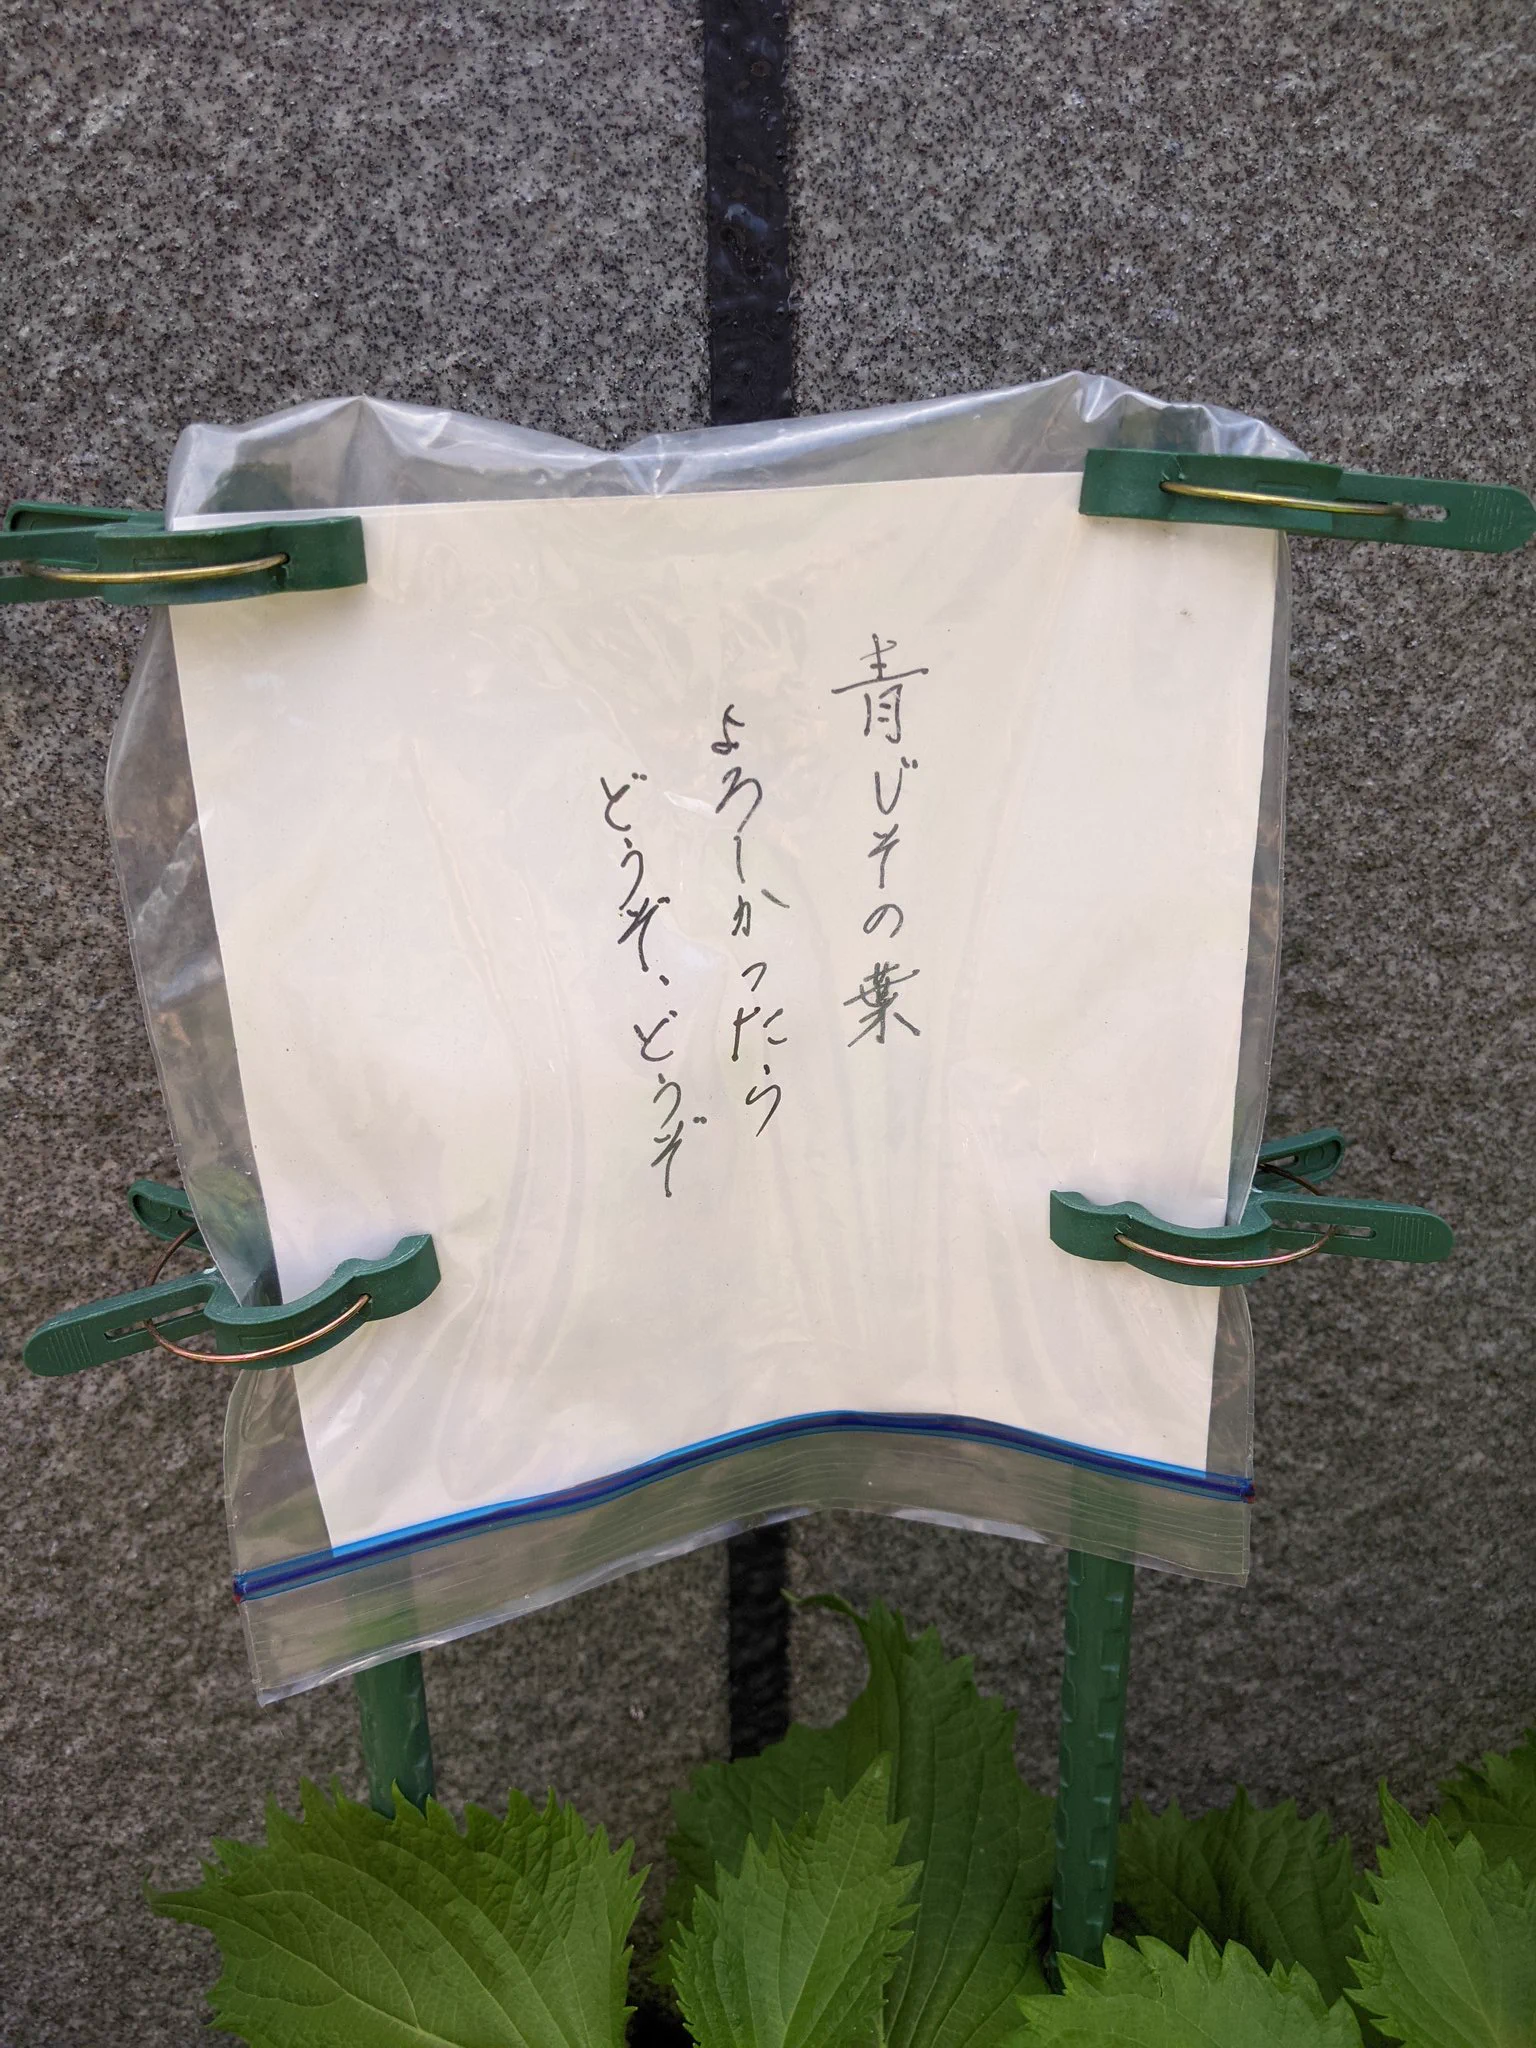 青じその葉
よろしかったら
どうぞ、どうぞ